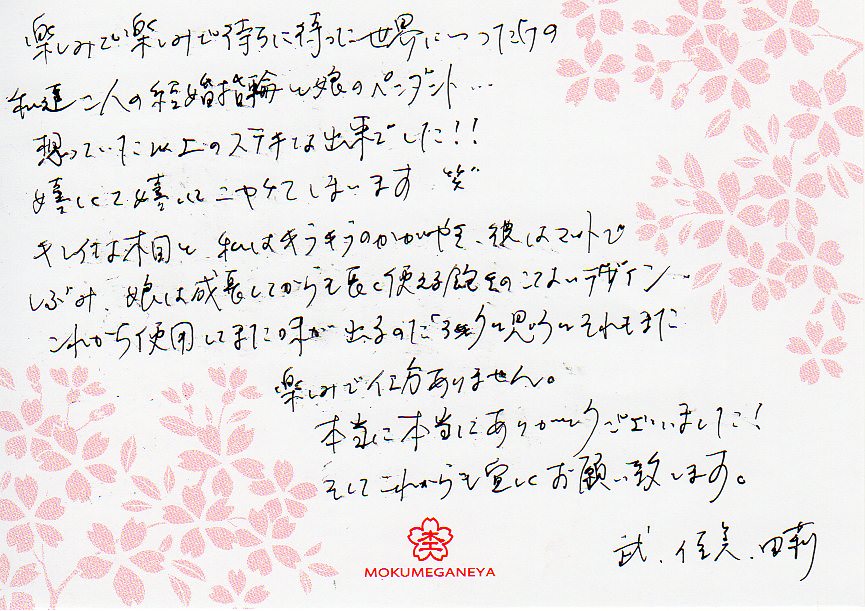 楽しみで楽しみで待ちに待った世界に一つだけの
私達二人の結婚指輪と娘のペンダント…
想っていた以上のステキな出来でした!!
嬉しくて嬉しくてニヤけてしまいます 笑
キレイな木目と、私はキラキラのかがやき、彼はマットで
しぶみ、娘は成長してからも長く使える飽きのこないデザイン…
これから使用してまた味が出るのだろうと思うとそれもまた
楽しみで仕方ありません。
本当に本当にありがとうございました!
そしてこれからも宜しくお願い致します。
武、佳美、
MOKUMEGANEYA